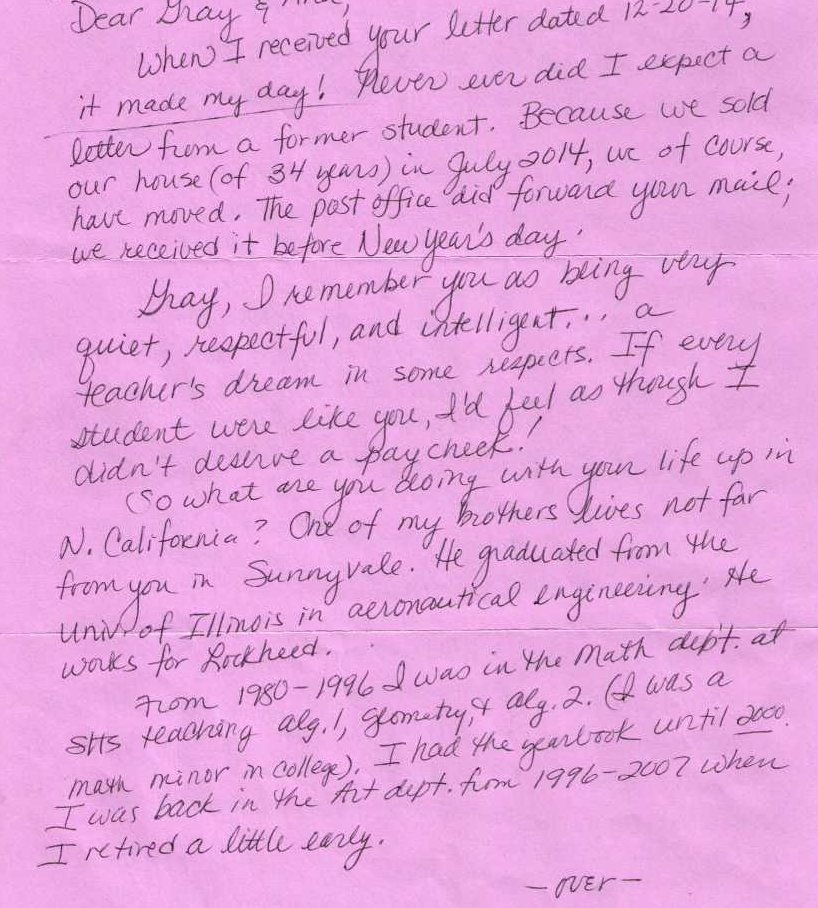 Dear Gray &
When I received your letter dated 12-20-14,
it made my day! Never ever did I expect a
letter from a former student. Because we sold
our house (of 34 years) in July 2014, we of course,
have moved. The post office did forward your mail;
we received it before New Year's day.
Gray, I remember you as being very
quiet, respectful, and intelligent... a
teacher's dream in some respects. If every
student were like you, I'd feel as though I
didn't deserve a paycheck!
So what are you doing with your life up in
N. California? One of my brothers lives not far
from you in Sunnyvale. He graduated from the
Univ. of Illinois in aeronautical engineering. He
works for Lockheed.
From 1980-1996 I was in the Math dep't. at
SHS teaching alg. 1, geometry, & alg. 2. (I was a
math minor in college). I had the yearbook until 2000.
I was back in the Art dept. from 1996-2007 when
I retired a little early.
-over-